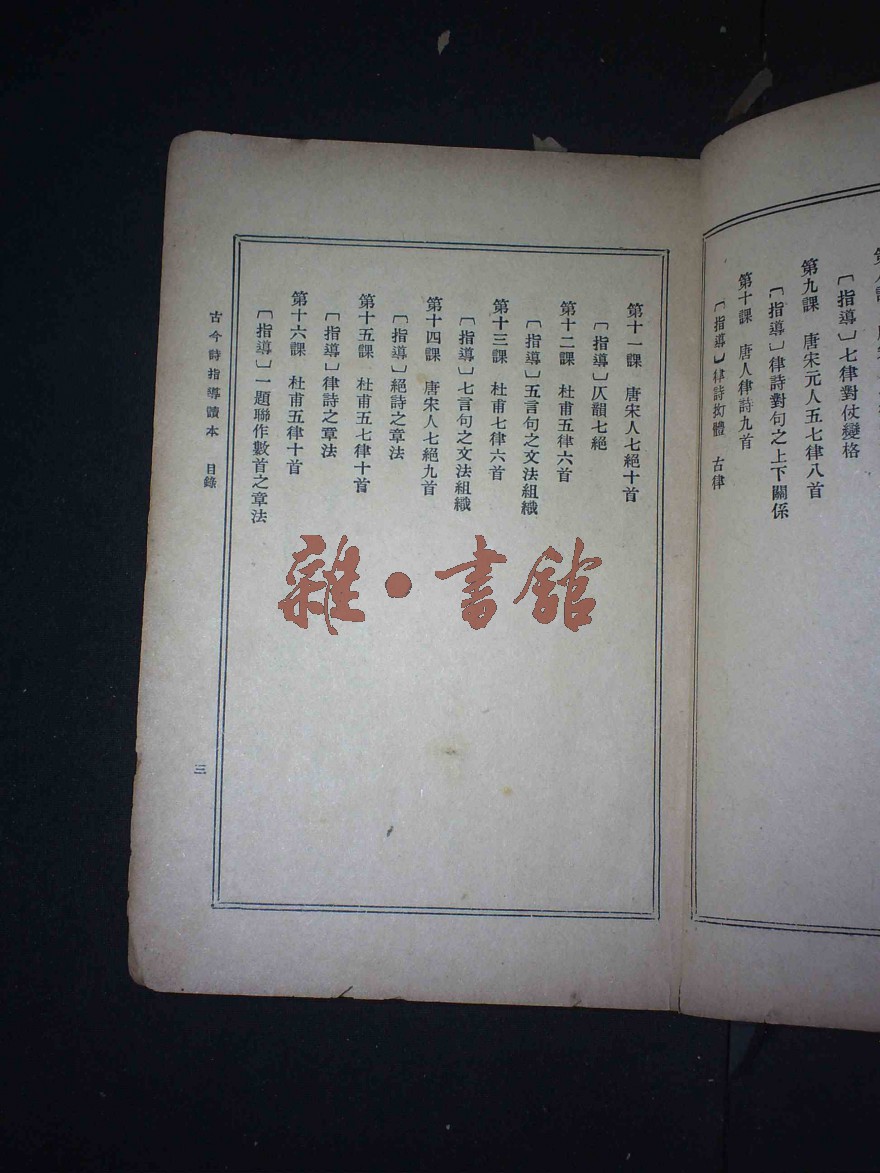 〔指導〕七律對仗變格
第九課　唐宋元人五七律八首
〔指導〕律詩對句之上下關係
第十課　唐人律詩九首
〔指導〕律詩拗體　古律
第十一課　唐宋人七絕十首
〔指導〕仄韻七絕
第十二課　杜甫五律六首
〔指導〕五言句之文法組織
第十三課　杜甫七律六首
〔指導〕七言句之文法組織
第十四課　唐宋人七絕九首
〔指導〕絕詩之章法
第十五課　杜甫五七律十首
〔指導〕律詩之章法
第十六課　杜甫五律十首
〔指導〕一題聯作數首之章法
古今詩指導讀本　目錄
三
雜·書館